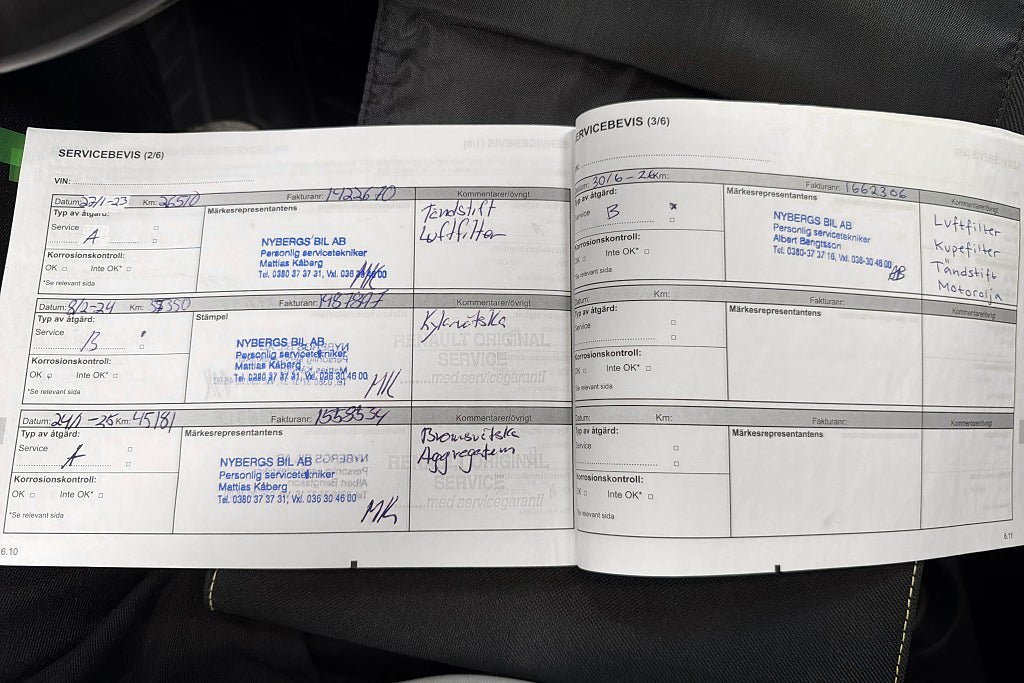 SERVICEBEVIS (2/6)
VIN:
Datum: 27/1-23 Km: 26510 Fakturanr: 1422670 Kommentarer/övrigt
Typ av åtgärd: Märkesrepresentantens
Service A
Tändstift
Luftfilter
NYBERGS BIL AB
Personlig servicetekniker
Mattias Kåberg
Tel. 0380 37 37 31, Vxl. 036 30 46 00
MK
Korrosionskontroll:
OK Inte OK*
*Se relevant sida
Datum: 8/2-24 Km: 37350 Fakturanr: 1487847 Kommentarer/övrigt
Typ av åtgärd: Stämpel
Service B
Kylarvätska
NYBERGS BIL AB
Personlig servicetekniker
Mattias Kåberg
Tel. 0380 37 37 31, Vxl. 036 30 46 00
MK
RENAULT ORIGINAL
SERVICE
.......med servicegaranti
Korrosionskontroll:
OK Inte OK*
*Se relevant sida
Datum: 24/1-25 Km: 45181 Fakturanr: 1553534 Kommentarer/övrigt
Typ av åtgärd: Märkesrepresentantens
Service A
Bromsvätska
Aggregatrem
NYBERGS BIL AB
Personlig servicetekniker
Mattias Kåberg
Tel. 0380 37 37 31, Vxl. 036 30 46 00
MK
RENAULT ORIGINAL
SERVICE
...med servicegaranti
Korrosionskontroll:
OK Inte OK*
*Se relevant sida
6.10
ERVICEBEVIS (3/6)
Datum: 30/6-26 Km: Fakturanr: 1662306 Kommentarer/övrigt
Typ av åtgärd: Märkesrepresentantens
Service B
Luftfilter
Kupefilter
Tändstift
Motorolja
NYBERGS BIL AB
Personlig servicetekniker
Albert Bengtsson
Tel. 0380-37 37 16, Vxl. 036-30 46 00
AB
Korrosionskontroll:
OK Inte OK*
*Se relevant sida
Datum: Km: Fakturanr: Kommentarer/övrigt
Typ av åtgärd: Märkesrepresentantens
Service
Korrosionskontroll:
OK Inte OK*
*Se relevant sida
Datum: Km: Fakturanr: Kommentarer/övrigt
Typ av åtgärd: Märkesrepresentantens
Service
Korrosionskontroll:
OK Inte OK*
*Se relevant sida
6.11